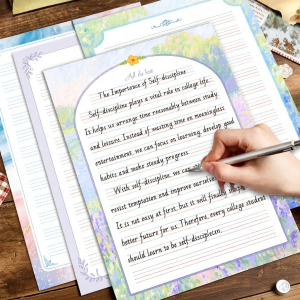 All the best
The Importance of Self-discipline
Self-discipline plays a vital role in college life.
It helps us arrange time reasonably between study
and leisure. Instead of wasting time on meaningless
entertainment, we can focus on learning, develop good
habits and make steady progress.
With self-discipline, we can
resist temptation and improve ourselves
It is not easy at first, but it will finally
better future for us. Therefore, every college student
should learn to be self-disciplined.